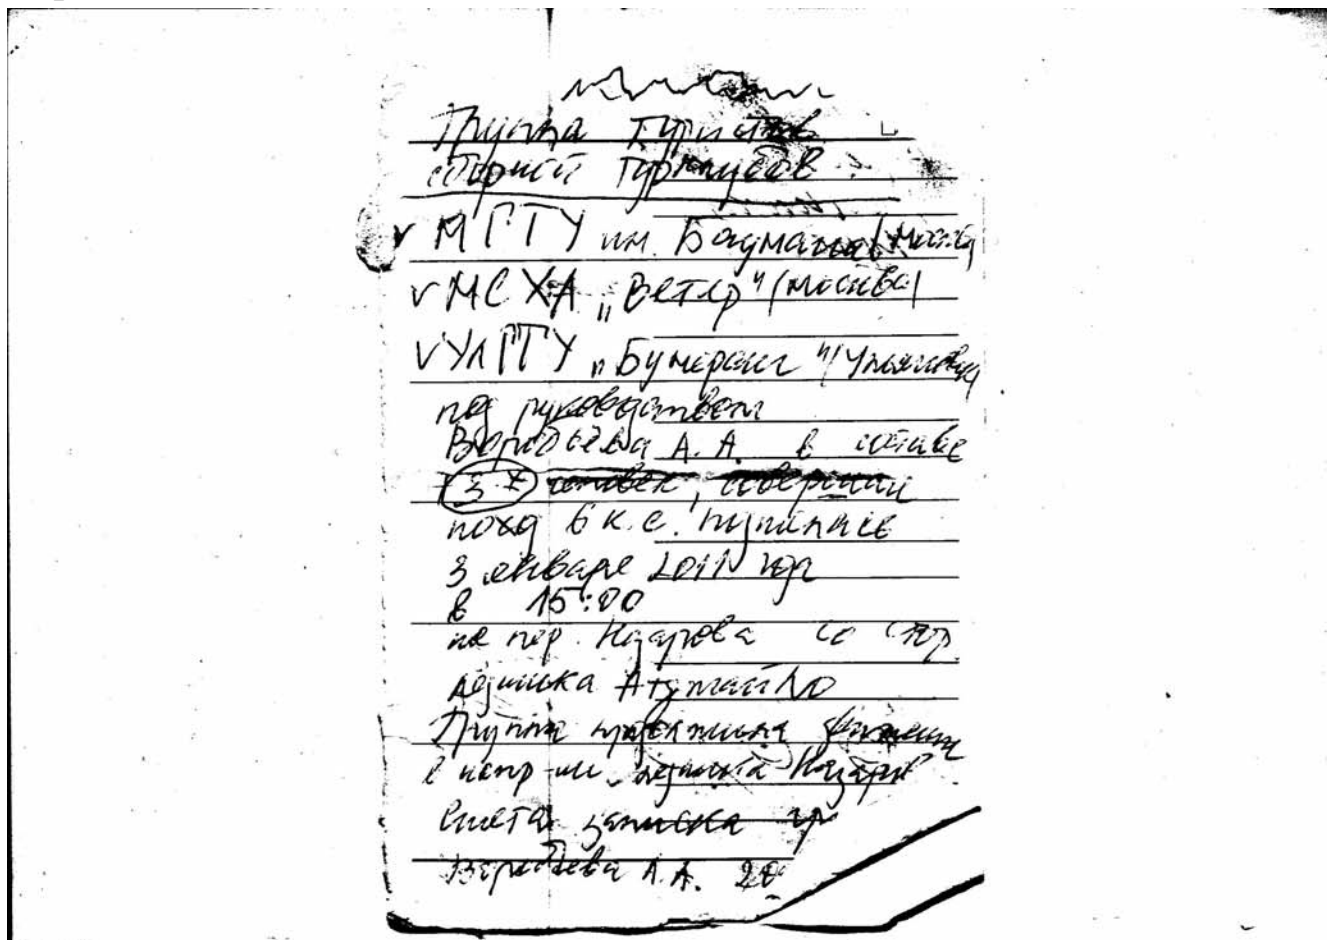 Группа туристов
сборной турклубов
v МГТУ им. Баумана (Москва)
v МСХА „Ветер" (Москва)
v УлГТУ „Бумеранг" (Ульяновск)
под руководством
Воробьёва А.А. в составе
3 человек, совершая
поход 6 к.с.
3 января 2011 года
в 15:00
на пер. Назарова со стор.
ледника Атутайло
Группа движение
в напр-ии ледника Назаров
Снята записка гр
Воробьева А.А. 20